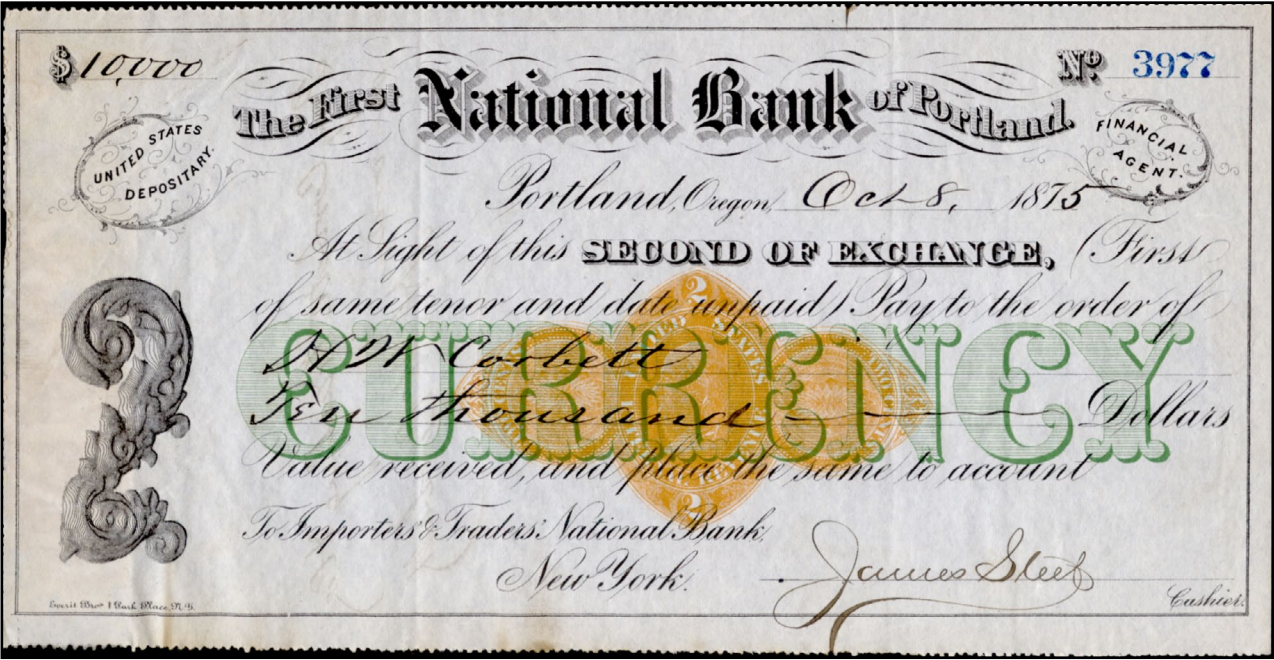 $10,000
Nº 3977
The First National Bank of Portland.
UNITED STATES DEPOSITARY.
FINANCIAL AGENT.
Portland, Oregon, Oct 8, 1875
At Sight of this SECOND OF EXCHANGE, (First
of same tenor and date unpaid) Pay to the order of
CURRENCY
2
UNITED STATES
H W Corbett
Ten thousand Dollars
Value received, and place the same to account
2
To Importers' & Traders' National Bank,
New York.
James Steel
Cashier.
Everit Bros 1 Park Place, N.Y.